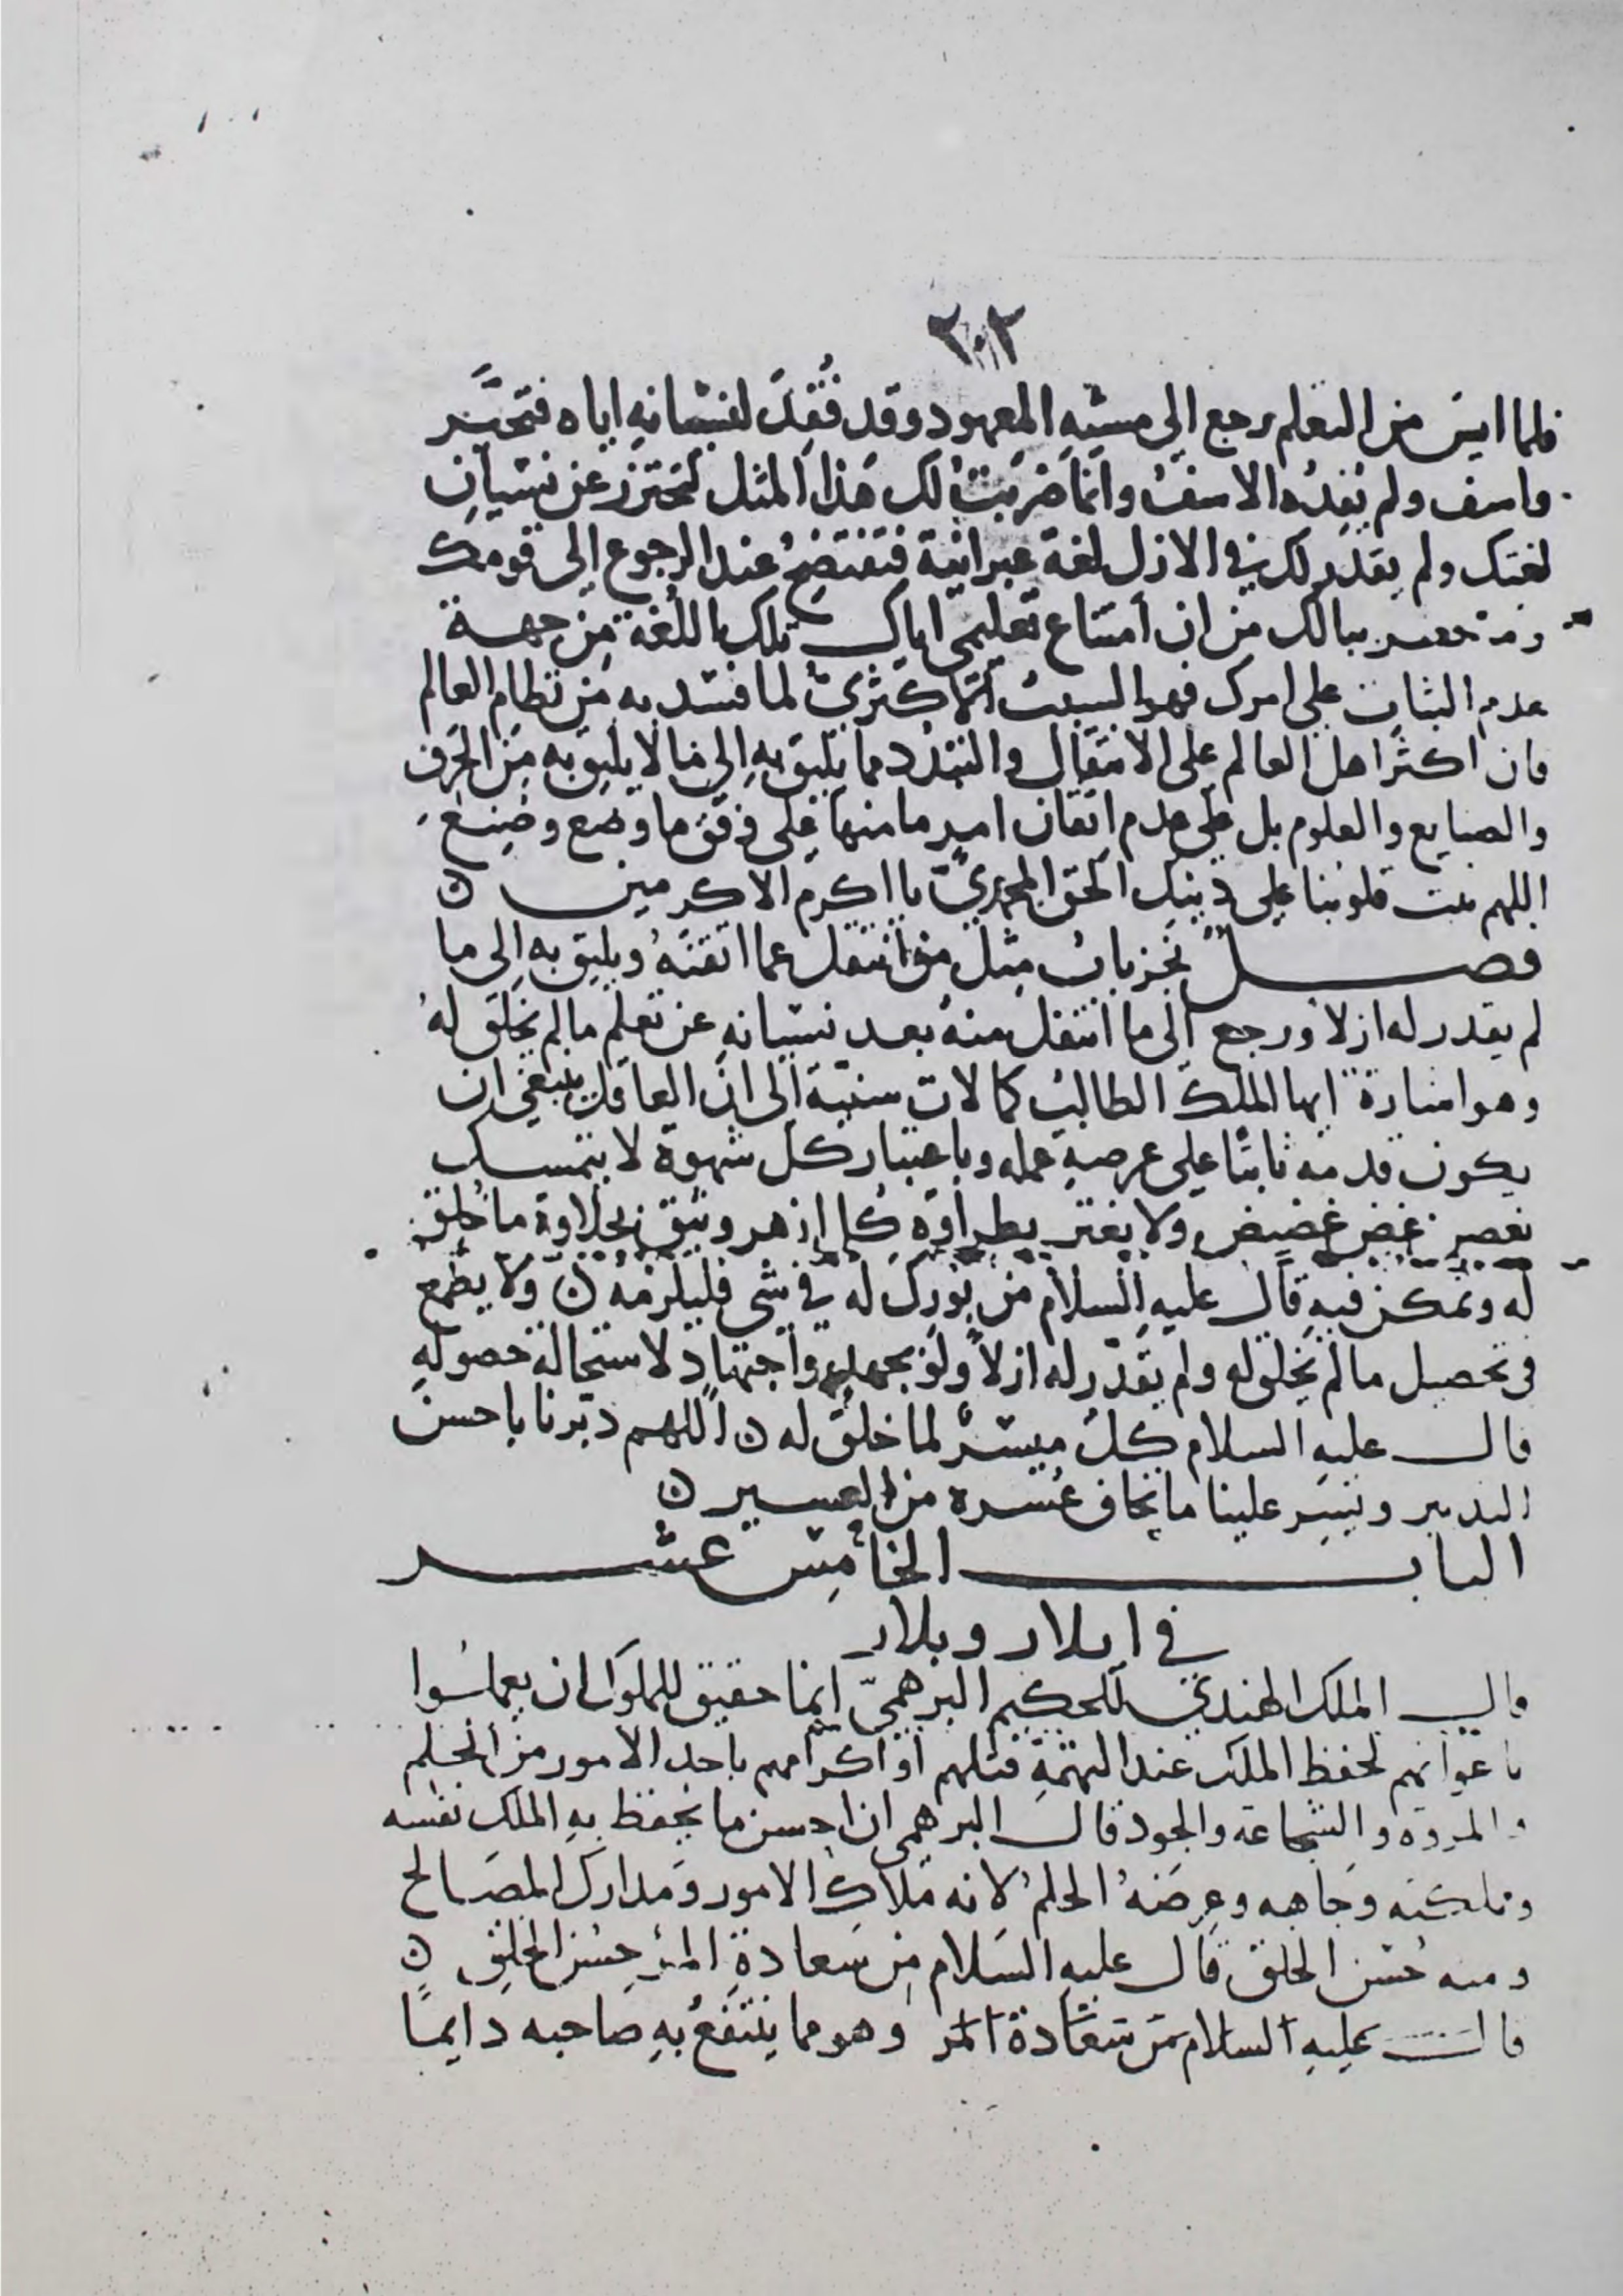 ٢٠٢
فلما ايس من التعلم رجع الى مشيه المعهود وقد فُقِدَ لنسيانه اياه فتحسَّر
واسف ولم يُفِدْه الاسفُ وانما ضربتُ لك هذا المثل لتحترز عن نسيان
لغتك ولم يقدر لك في الازل لغة عبرانية فتفتضحُ عند الرجوع الى قومك
ببالك من ان امتناع تعليمي اياك تلك اللغة من جهة
عدم الثبات على امرك فهو السبب الاكثريّ لما فسد به من نظام العالم
فان اكثر اهل العالم على الانتقال والتبدد مما يليق به الى ما لا يليق به من الحرف
والصنايع والعلوم بل على عدم اتقان امرٍ ما منها على وفق ما وضع وصنع
اللهم ثبت قلوبنا على دينك الحق المحمديّ يا اكرم الاكرمين ن
فصل مثل من انتقل عما اتقنه ويليق به الى ما
لم يقدر له ازلا ورجع الى ما انتقل منه بعد نسيانه عن تعلم ما لم يخلق لهُ
وهو اشارة ايها الملك الطالب كمالات سنيّة الى ان العاقل ينبغي ان
يكون قدمه ثابتًا على عرصة عمله وباعتبار كل شهوة لا يتمسك
غض غضيض ولا يغتر بطراوة كل ازهر وثيق بحلاوة ما خلق
له وتمكن فيه قال عليه السلام من بورك له في شي فليلزمه ن ولا يطمع
في تحصيل ما لم يخلق له ولم يقدّر له ازلاً ولو بجهد واجتهاد لاستحالة حصوله
قال عليه السلام كلٌ ميسّرٌ لما خلق له ن اللهم دبّرنا باحسن
التدبير ويسّر علينا ما نخاف عُسره من العسير ن
الباب الخامس عشر
في ابلاد وبلاد
قال الملك الهندي للحكيم البرهميّ ايما حقيق للملوك ان يعاملوا
باعوانهم لحفظ الملك عند التهمة قتلهم او اكرامهم باحد الامور من الحلم
والمروة والشجاعة والجود قال البرهمي ان احسن ما يحفظ به الملك نفسه
ومملكته وجاهه وعرضهُ الحلم لانه ملاك الامور ومدارك المصالح
ومنه حُسن الخلق قال عليه السلام من سعادة المرْ حسن الخلق ن
قال عليه السلام من سعادة المر وهو مما ينتفعُ به صاحبه دايمًا